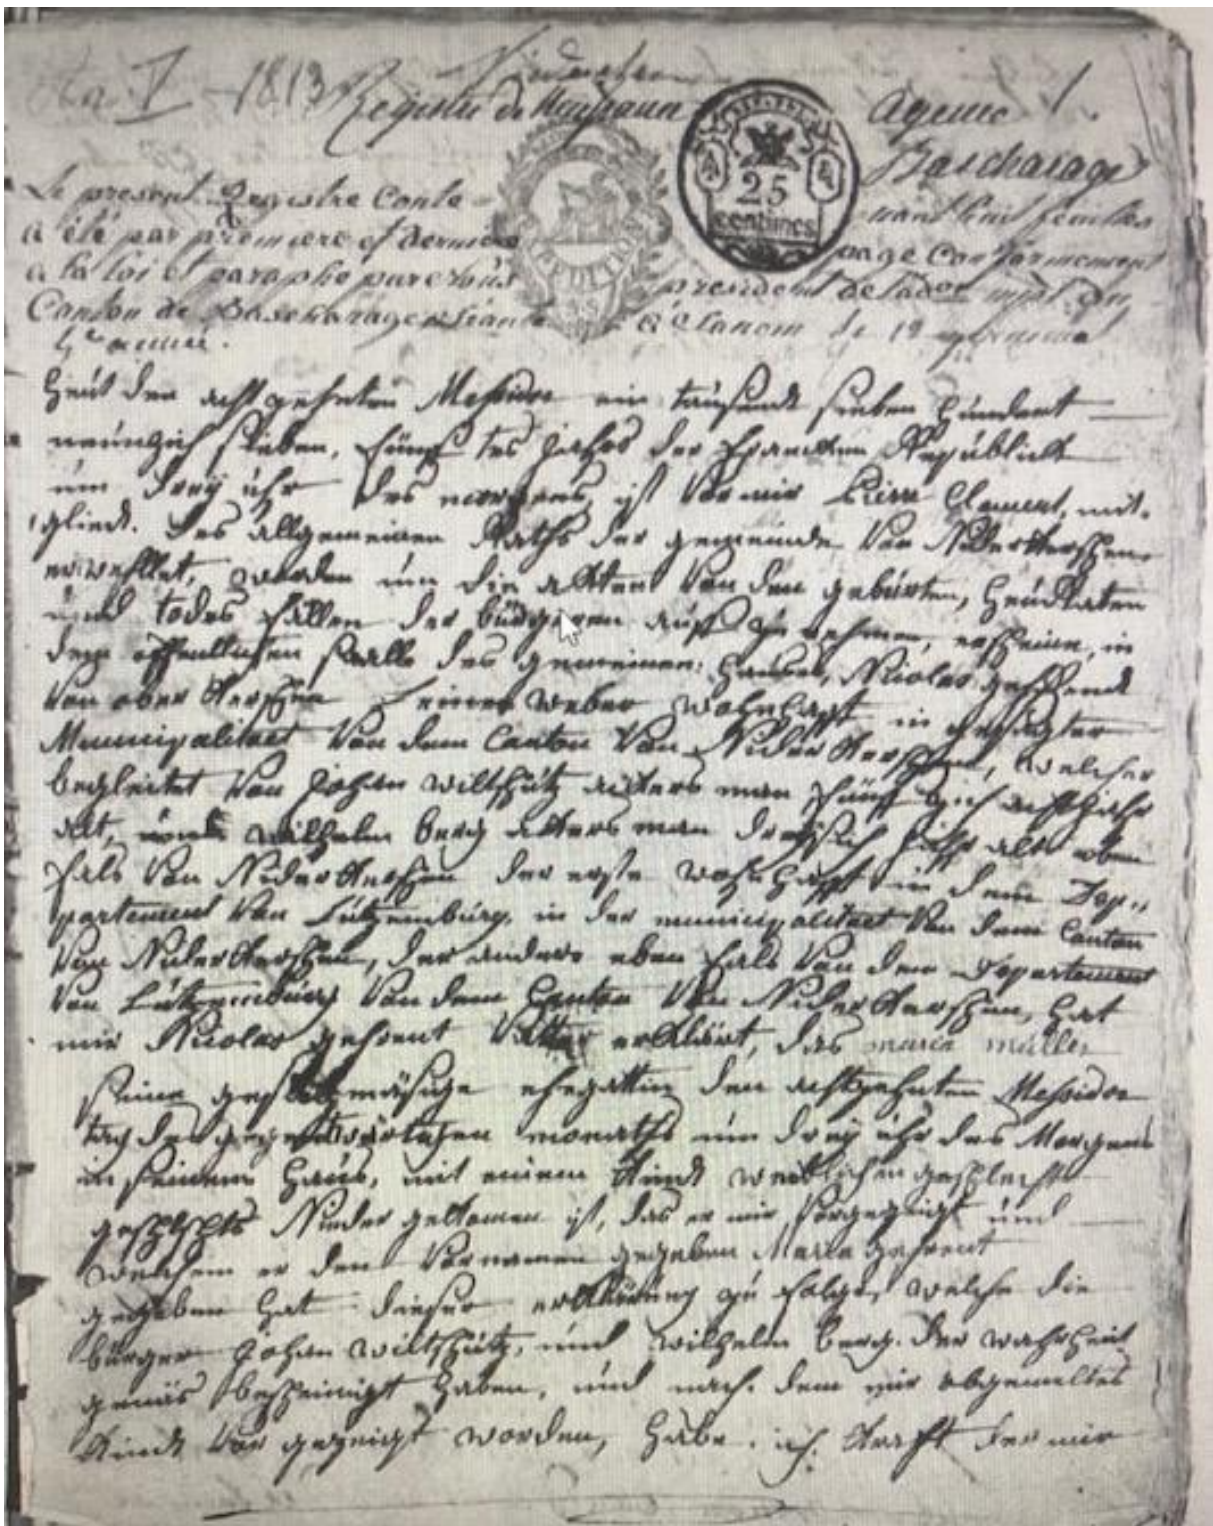 1813
Registre de Naissance
Agence 1.
25
centimes
Bascharage
Le present Registre Conte
nant huit feuilles
a été par premiere et derniere
page Conformement
a la loi et paraphé par nous
president de
Canton de Bascharage
à Clanom le 19 germinal
5me année.
Heüt den acht zehnten Messidor ein taüsendt sieben hündert
neünzich sieben, fünf tes jahrs der francken Repüblick
üm dreÿ ühr des morgens, ist vor mir Pierre Clement, mit-
gliedt des allgemeinen Raths der gemeinde von Niderkerschen
erwehlet, worden üm die ackten von den gebürten, heüraten
ünd todes fällen der bürgeren auf zü nehmen, erschienen, in
dem öffentlichen saalle des gemeinen haüses, Nicolas
von ober Kerschen seines weber wohnhaft in gesagter
Municipalitaet von dem Canton von Nider Kerschen, welcher
begleitet von Johan wiltschütz alters man fünf zich acht jahr
alt, ünd wilhelm berg alters man dreÿssich jahr alt eben
fals von Nider Kerschen der erste wohnhaft in dem Dep-
partement von Lützembürg, in der municipalitaet von dem Canton
von Nider Kerschen, der andere eben fals von dem Departement
von Lützembürg von dem Canton von Nider Kerschen, hat
mir Nicolas erklärt, das maria müller
seine gesetzmäsige ehegattin den achtzehnten Messidor
tag des gegenwärtigen monaths üm dreÿ ühr des Morgens
in seinem haüs, mit einem Kindt weiblichen geschlecht
geschlechts Nieder gekomen ist, das er mir vorgezeigt ünd
welchem er den vornamen gegeben Maria
gegeben hat dieser erklärüng zü folge, welche die
bürger Johan wiltschütz, ünd wilhelm berg. der wahrheit
gemäs bescheinigt haben, ünd nach dem mir obgemeltes
Kindt vor gezeigt worden, habe ich Krafft der mir